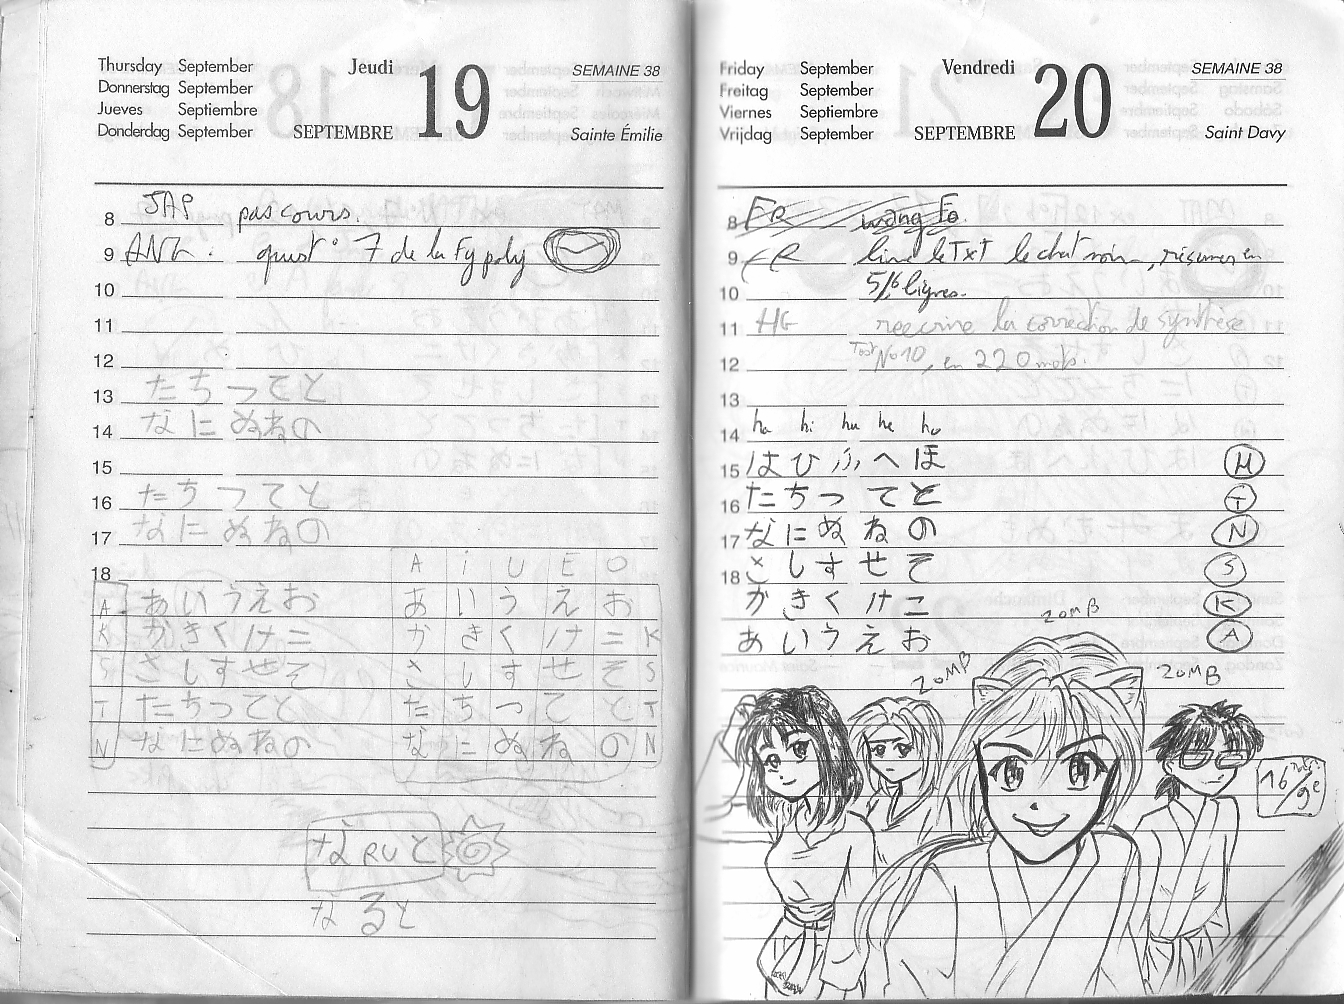 Thursday September
Donnerstag September
Jueves Septiembre
Donderdag September
Jeudi
SEPTEMBRE
19
SEMAINE 38
Sainte Émilie
8 JAP pas cours.
9 ANG: quest° 7 de la Fy poly
10
11
12
13 たちつてと
14 なにぬねの
15
16 たちつてと
17 なにぬねの
18
A i U E O
A あいうえお あ い う え お
K かきくけこ か き く け こ K
S さしすせそ さ し す せ そ S
T たちつてと た ち つ て と T
N なにぬねの な に ぬ ね の N
な RU と
なると
Friday September
Freitag September
Viernes Septiembre
Vrijdag September
Vendredi
SEPTEMBRE
20
SEMAINE 38
Saint Davy
8 FR
9 FR lire le TxT le chat noir, résumer en
10 5/6 lignes.
11 HG reecrire la correction de synthèse
12 N°10, en 220 mots.
13
14 ha hi hu he ho
15 は ひ ふ へ ほ H
16 た ち つ て と T
17 な に ぬ ね の N
18 さ し す せ そ S
か き く け こ K
あ い う え お A
20MB
20MB
20MB
16
9e